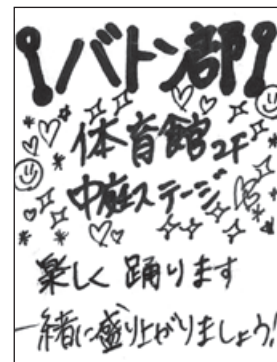 バトン部
体育館2F
中庭ステージ
楽しく踊ります
一緒に盛り上がりましょう!